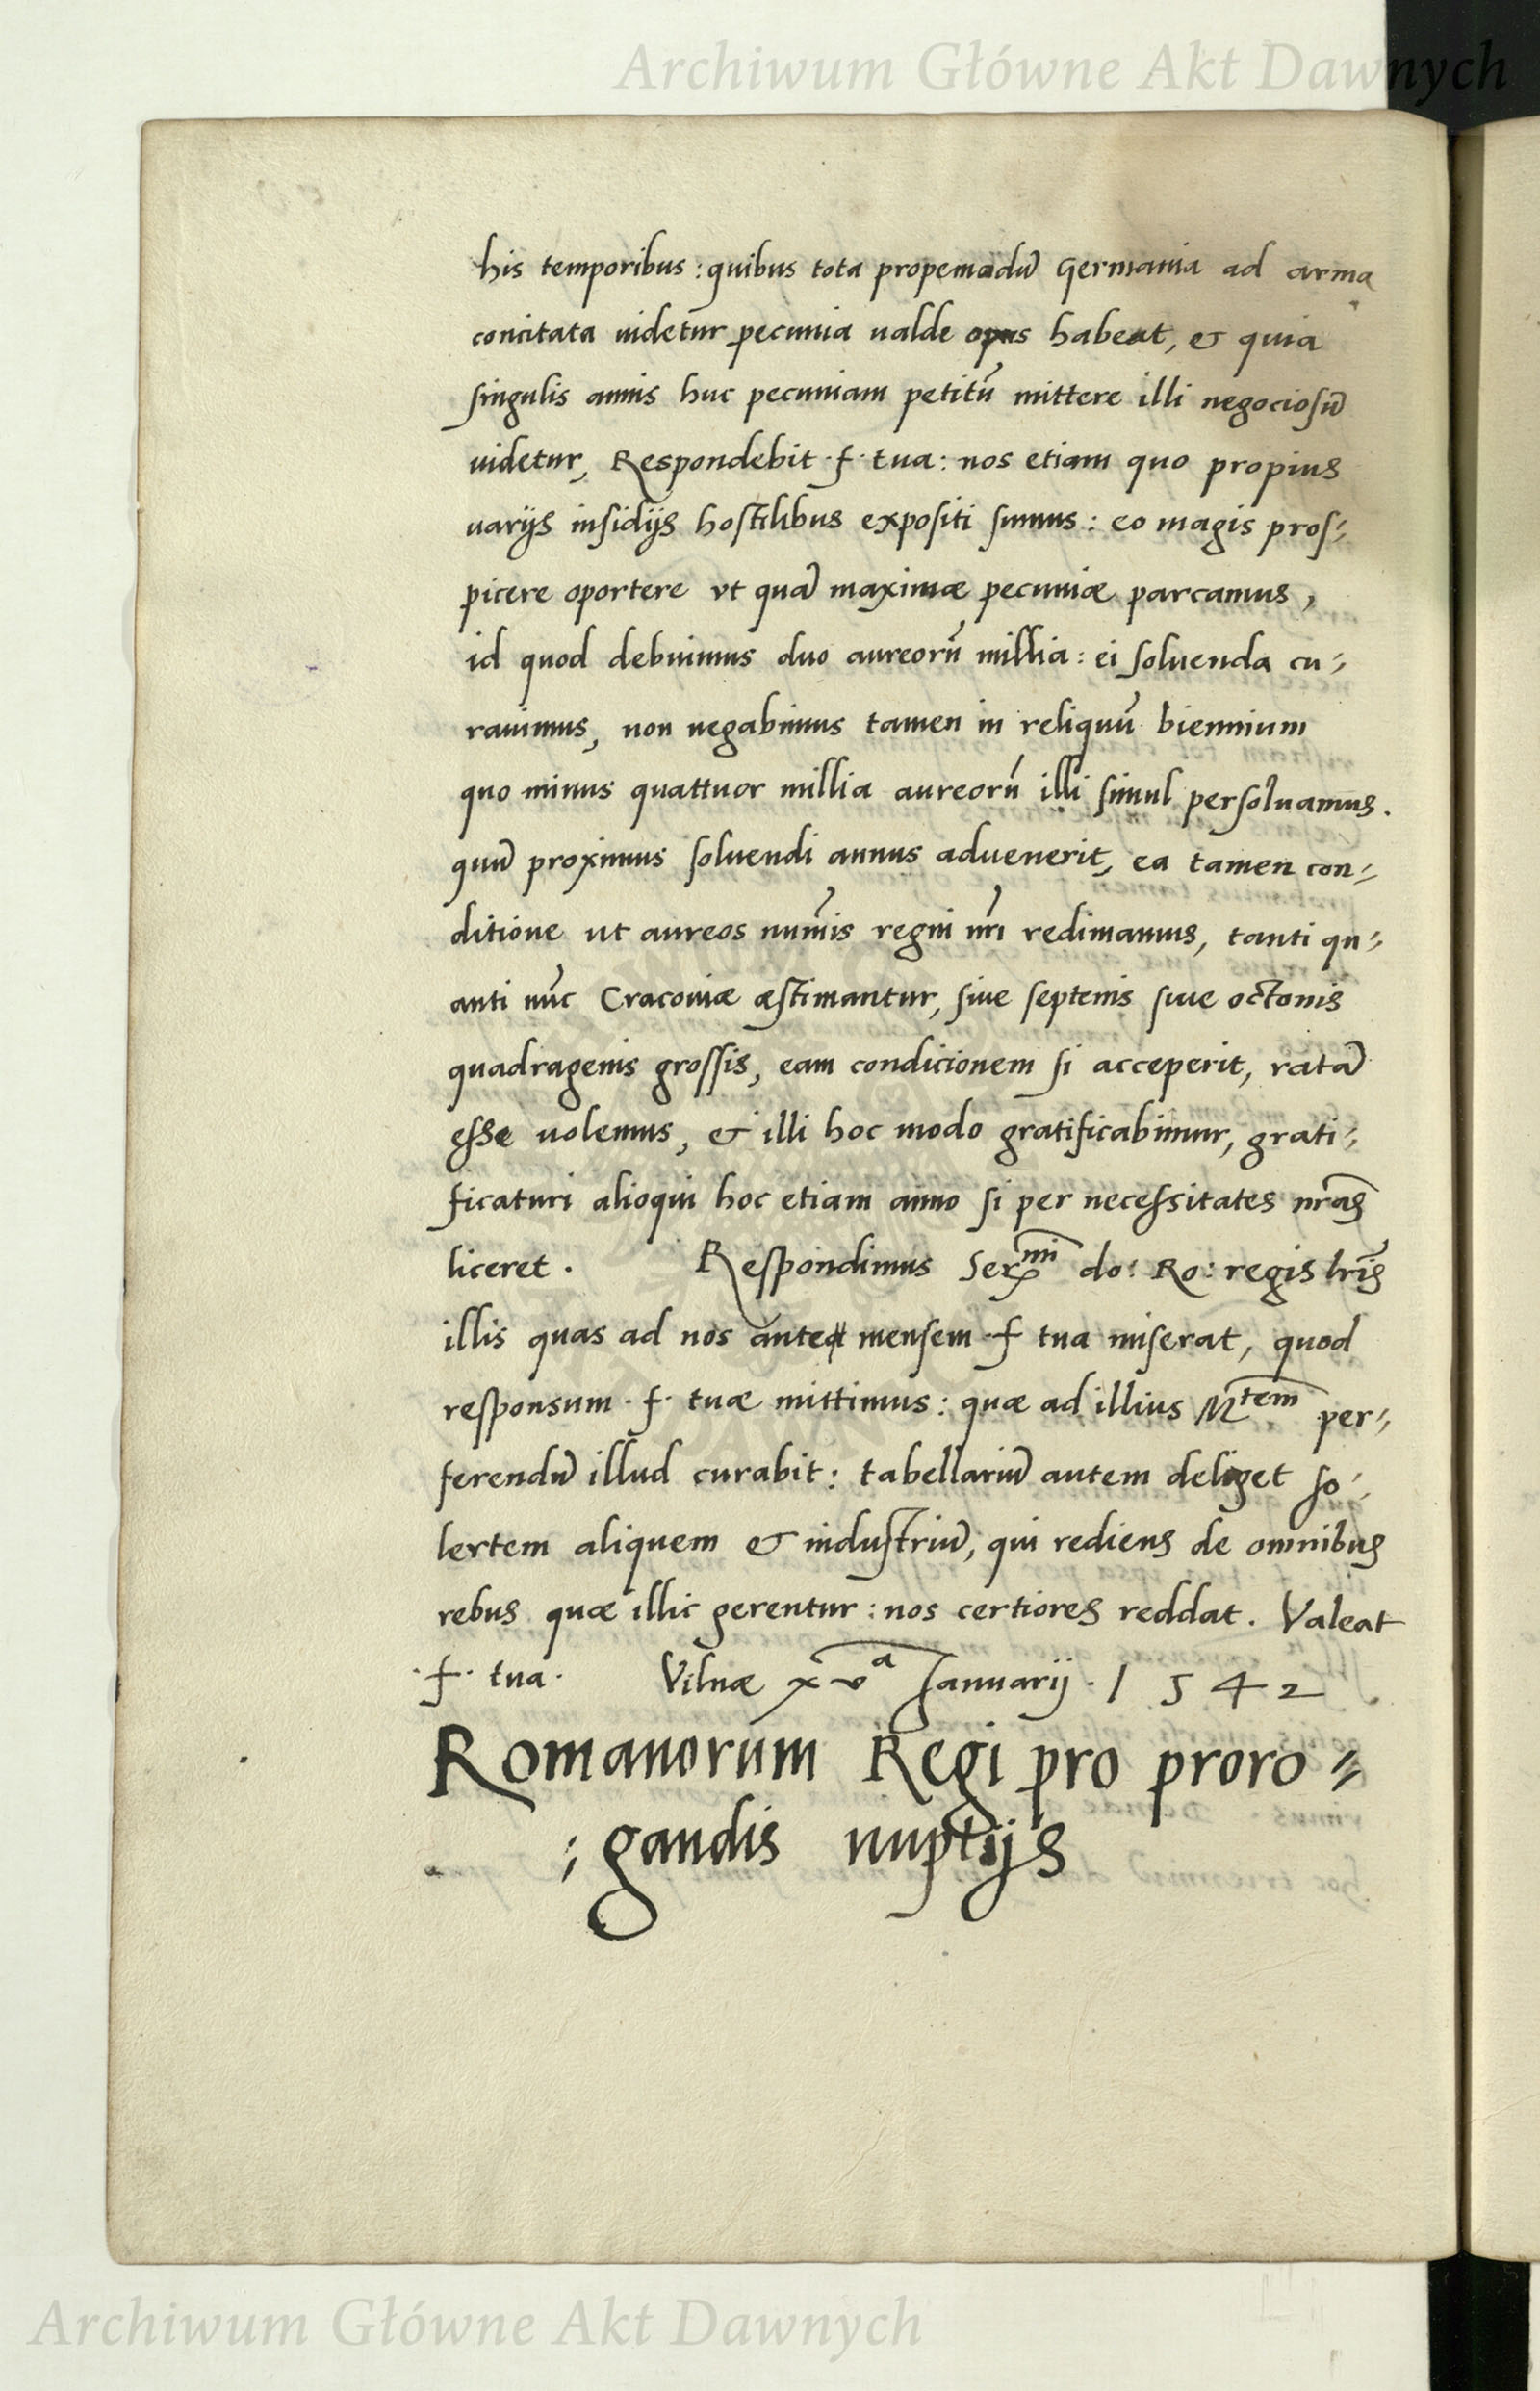 Archiwum Główne Akt Dawnych
his temporibus: quibus tota propemodũ Germania ad arma
concitata uidetur pecunia ualde opus habeat, & quia
singulis annis huc pecuniam petitũ mittere illi negociosũ
uidetur, Respondebit ·f· tua: nos etiam quo propius
uarijs insidijs hostilibus expositi sumus: eo magis pros⸗
picere oportere vt quã maximæ pecuniæ parcamus,
id quod debuimus duo aureorũ millia: ei soluenda cu⸗
rauimus, non negabimus tamen in reliquũ biennium
quo minus quattuor millia aureorũ illi simul persoluamus.
quũ proximus soluendi annus aduenerit, ea tamen con⸗
ditione ut aureos num̃is regni nr̃i redimamus, tanti qu⸗
anti nũc Cracouiæ æstimantur, siue septenis siue octonis
quadragenis grossis, eam condicionem si acceperit, ratã
esse uolemus, & illi hoc modo gratificabimur, grati⸗
ficaturi alioqui hoc etiam anno si per necessitates nrãs
liceret. Respondimus Serᵐⁱ do: Ro: regis lr̃is
illis quas ad nos anteq̃ mensem ·f tua miserat, quod
responsum ·f· tuæ mittimus: quæ ad illius Mᵗᵉᵐ per⸗
ferendũ illud curabit: tabellariũ autem deliget so⸗
lertem aliquem & industriũ, qui rediens de omnibus
rebus quæ illic gerentur: nos certiores reddat. Valeat
·f· tua· Vilnæ xvᵃ Januarij · 1542
Romanorum Regi pro proro⸗
⸗gandis nuptijs
Archiwum Główne Akt Dawnych